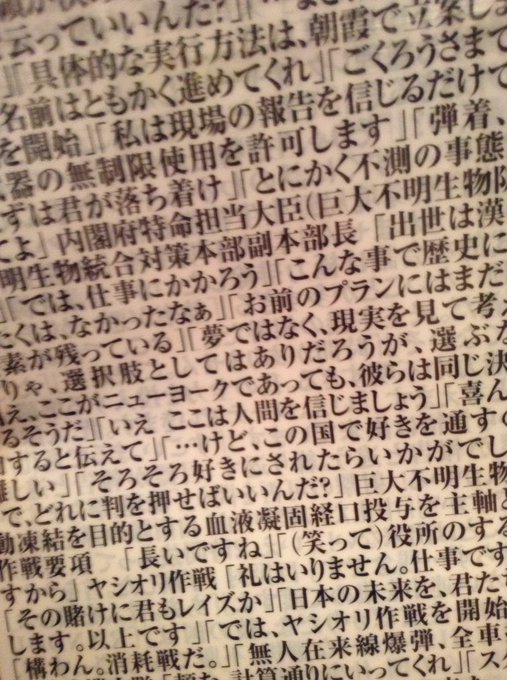 云っていいんだ?」「
」『具体的な実行方法は、朝霞で立案しま
名前はともかく進めてくれ」「ごくろうさまで
を開始」「私は現場の報告を信じるだけで
器の無制限使用を許可します」「弾着、
ずは君が落ち着け」「とにかく不測の事態
てよ」内閣府特命担当大臣(巨大不明生物防
明生物統合対策本部副本部長 「出世は漢
」「では、仕事にかかろう」「こんな事で歴史に
たくは、なかったなぁ」「お前のプランにはまだ
素が残っている」「夢ではなく、現実を見て考え
りゃ、選択肢としてはありだろうが、選ぶな
え、ここがニューヨークであっても、彼らは同じ決
るそうだ」「いえ ここは人間を信じましょう」「喜ん
すると伝えて」「…けど、この国で好きを通すの
難しい」「そろそろ好きにされたらいかがでし
で、どれに判を押せばいいんだ?」巨大不明生物
動凍結を目的とする血液凝固経口投与を主軸と
作戦要項 「長いですね」「(笑って)役所のする
すから」ヤシオリ作戦「礼はいりません。仕事です
「その賭けに君もレイズか」「日本の未来を、君た
します。以上です」「では、ヤシオリ作戦を開始
「構わん。消耗戦だ。」「無人在来線爆弾、全車
計算通りにいってくれ」「ス